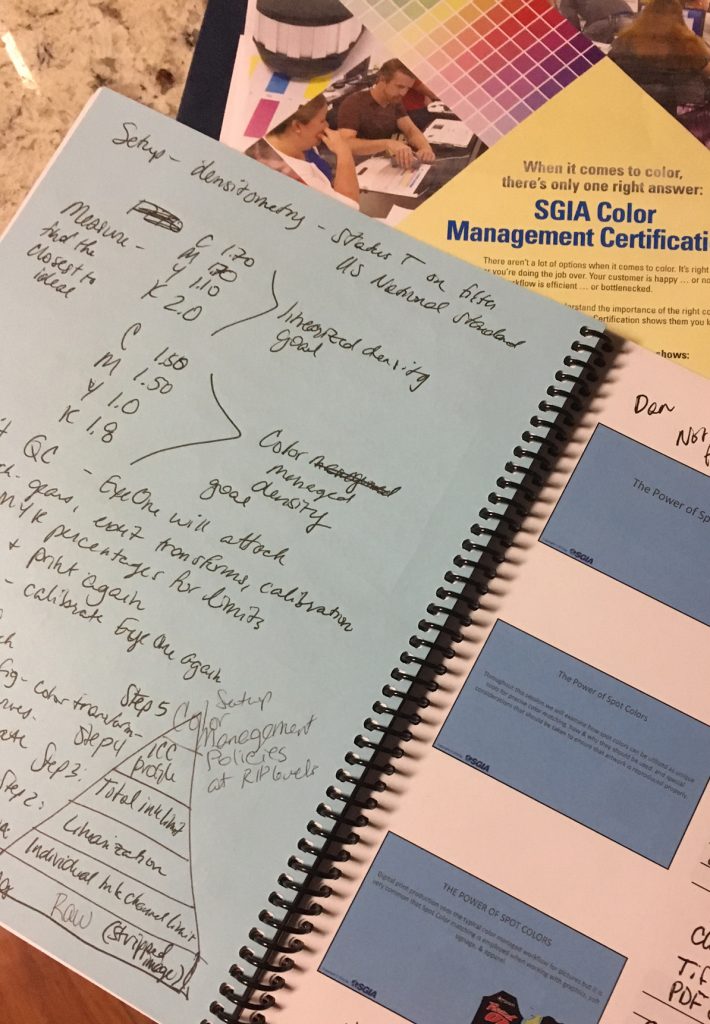 When it comes to color,
there's only one right answer:
SGIA Color
Management Certificati
There aren't a lot of options when it comes to color. It's right
or you're doing the job over. Your customer is happy ... or no
workflow is efficient ... or bottlenecked.
the importance of the right co
Certification shows them you k
shows:
Setup - densitometry - Status T on filter
US National Standard
Measure -
find the
closest to
ideal
C 1.70
M 1.70
Y 1.10
K 2.0
linearized density
goal
C 1.50
M 1.50
Y 1.0
K 1.8
Color
managed
density
goal
QC - EyeOne will attach
transforms, calibration
percentages for limits
+ print again
- calibrate Eye One again
color transform
Step 5
Setup
Color
Management
Policies
at RIP levels
Step 4
ICC
Profile
Step 3:
Total ink limit
Step 2:
Linarization
Individual ink channel limit
Raw (stripped
image)
Dan
Not
The Power of Sp
SGIA
The Power of Spot Colors
Throughout this session we will examine how spot colors can be utilized as unique
considerations that should be taken to ensure that artwork is reproduced properly.
SGIA
THE POWER OF SPOT COLORS
Digital print production uses the typical color managed workflow for pictures but it is
very common that Spot Color matching is employed when working with graphics, pop
signage, & apparel.
SGIA
Tif
PDF